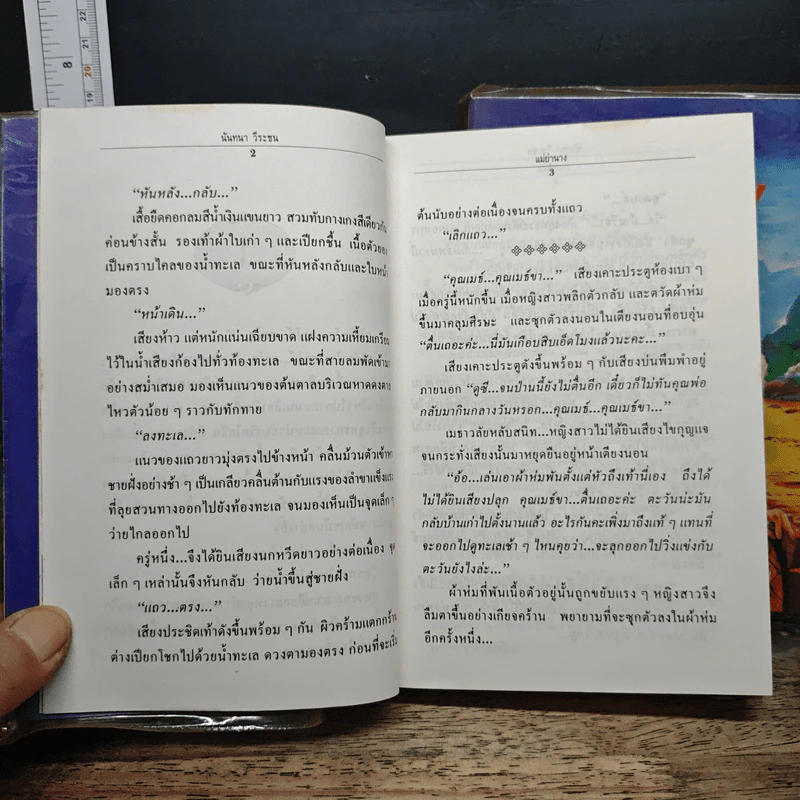 8
22
21
20
19
นันทนา วีระชน
2
“หันหลัง...กลับ...”
เสื้อยืดคอกลมสีน้ำเงินแขนยาว สวมทับกางเกงสีเดียวกัน
ค่อนข้างสั้น รองเท้าผ้าใบเก่า ๆ และเปียกชื้น เนื้อตัวของ
เป็นคราบไคลของน้ำทะเล ขณะที่หันหลังกลับและใบหน้า
มองตรง
“หน้าเดิน...”
เสียงห้าว แต่หนักแน่นเฉียบขาด แฝงความเหี้ยมเกรียม
ไว้ในน้ำเสียงก้องไปทั่วท้องทะเล ขณะที่สายลมพัดเข้ามา
อย่างสม่ำเสมอ มองเห็นแนวของต้นตาลบริเวณหาดดงตาล
ไหวตัวน้อย ๆ ราวกับทักทาย
“ลงทะเล...”
แนวของแถวยาวมุ่งตรงไปข้างหน้า คลื่นม้วนตัวเข้าหา
ชายฝั่งอย่างช้า ๆ เป็นเกลียวคลื่นต้านกับแรงของลำขาแข็งแรง
ที่ลุยสวนทางออกไปยังท้องทะเล จนมองเห็นเป็นจุดเล็ก ๆ
ว่ายไกลออกไป
ครู่หนึ่ง...จึงได้ยินเสียงนกหวีดยาวอย่างต่อเนื่อง
เล็ก ๆ เหล่านั้นจึงหันกลับ ว่ายน้ำขึ้นสู่ชายฝั่ง
“แถว...ตรง...”
เสียงประชิดเท้าดังขึ้นพร้อม ๆ กัน ผิวคร้ามแตกกร้าน
ต่างเปียกโชกไปด้วยน้ำทะเล ดวงตามองตรง ก่อนที่จะเริ่ม
แม่ย่านาง
3
ต้นนับอย่างต่อเนื่องจนครบทั้งแถว
“เลิกแถว...”
“คุณเมธ์...คุณเมธ์ขา...” เสียงเคาะประตูห้องเบา ๆ
เมื่อครู่นี้หนักขึ้น เมื่อหญิงสาวพลิกตัวกลับ และตวัดผ้าห่ม
ขึ้นมาคลุมศีรษะ และซุกตัวลงนอนในเตียงนอนที่อบอุ่น
“ตื่นเถอะค่ะ...นี่มันเกือบสิบเอ็ดโมงแล้วนะคะ...”
เสียงเคาะประตูดังขึ้นพร้อม ๆ กับเสียงบ่นพึมพำอยู่
ภายนอก “ดูซี...จนป่านนี้ยังไม่ตื่นอีก เดี๋ยวก็ไม่ทันคุณพ่อ
กลับมากินกลางวันหรอก...คุณเมธ์...คุณเมธ์ขา...”
เมธาวลัยหลับสนิท...หญิงสาวไม่ได้ยินเสียงไขกุญแจ
จนกระทั่งเสียงนั้นมาหยุดยืนอยู่หน้าเตียงนอน
“อ้อ...เล่นเอาผ้าห่มพันตั้งแต่หัวถึงเท้านี่เอง ถึงได้
ไม่ได้ยินเสียงปลุก คุณเมธ์ขา...ตื่นเถอะค่ะ ตะวันน่ะมัน
กลับบ้านเก่าไปตั้งนานแล้ว อะไรกันคะเพิ่งมาถึงแท้ ๆ แทนที่
จะออกไปดูทะเลเช้า ๆ ไหนคุยว่า...จะลุกออกไปวิ่งแข่งกับ
ตะวันยังไงล่ะ...”
ผ้าห่มที่พันเนื้อตัวอยู่นั้นถูกขยับแรง ๆ หญิงสาวจึง
ลืมตาขึ้นอย่างเกียจคร้าน พยายามที่จะซุกตัวลงในผ้าห่ม
อีกครั้งหนึ่ง...